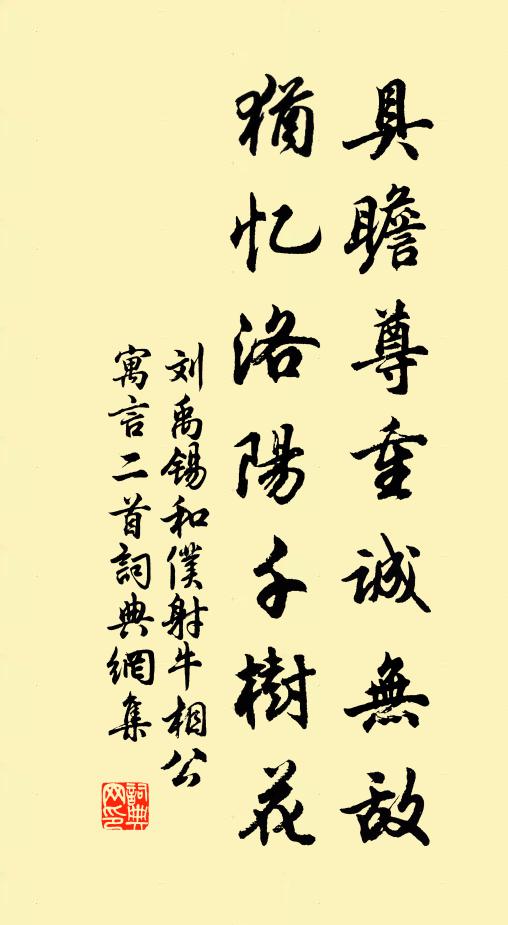 具瞻尊重誠無敌
猶忆洛陽千樹花
刘禹锡和僕射牛相公
寓言二首詞典網集
詞典
网印